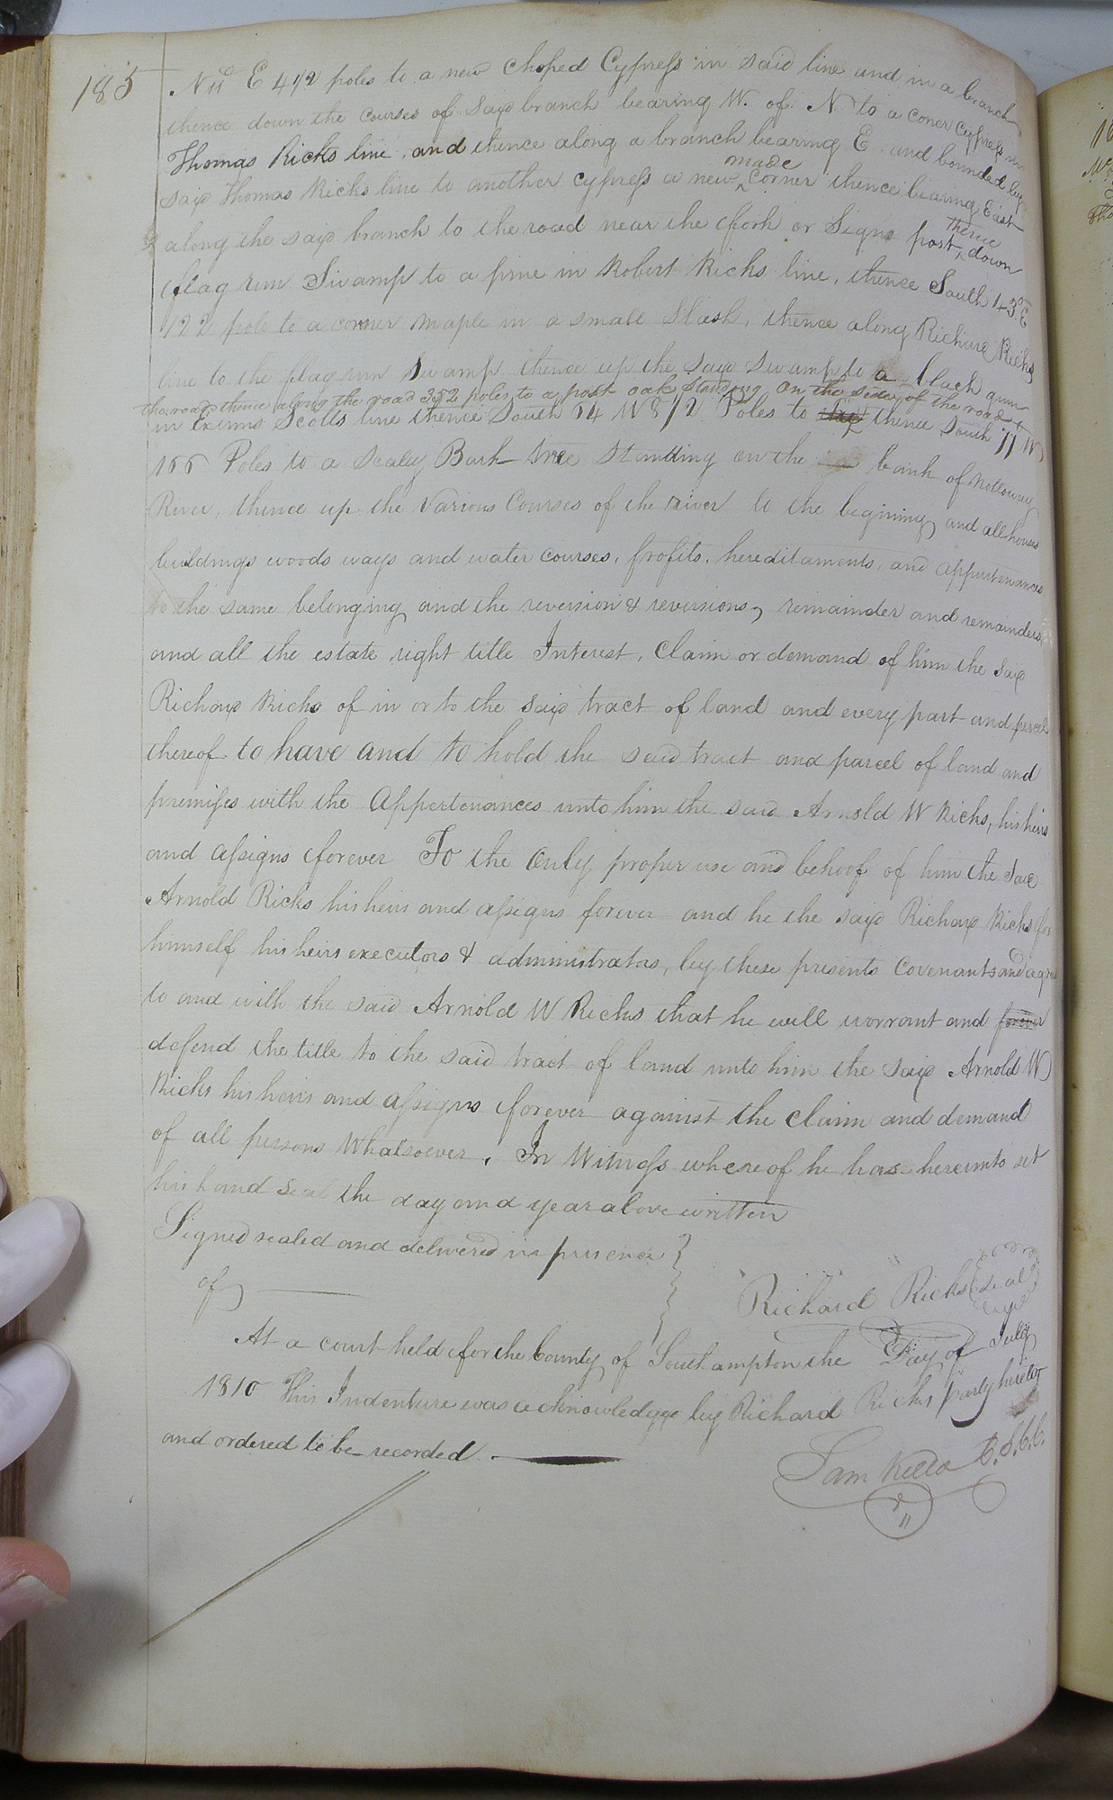 185
N 11° E 412 poles to a new Choped Cypress in said line and in a branch
thence down the courses of Said branch bearing W. of N to a coner cypress in
Thomas Ricks line, and thence along a branch bearing E and bounded by
said Thomas Ricks line to another cypress a new made corner thence bearing East
along the said branch to the road near the fork or Signe post, thence down
flag run Swamp to a pine in Robert Ricks line, thence South 43° E
122 pole to a corner maple in a small Slash, thence along Richard Ricks
line to the flag run Swamp thence up the said swamp to a black gum
the road thence along the road 352 poles to a post oak standing on the side of the road &
in Exums Scotts line thence South 54 W 812 Poles to thence South 77 W
166 Poles to a Scaley Bark tree Standing on the bank of Nottoway
River, thence up the various Courses of the river to the begining and all houses
buildings woods ways and water courses, profits, hereditaments, and appurtenances
to the same belonging and the reversion & reversions, remainder and remainders
and all the estate right title Interest, Claim or demand of him the said
Richard Ricks of in or to the said tract of land and every part and parcel
thereof to have and to hold the said tract and parcel of land and
premises with the Appertenances unto him the said Arnold W Ricks, his heirs
and assigns forever To the Only proper use and behoof of him the said
Arnold Ricks his heirs and assigns forever and he the said Richard Ricks for
himself his heirs executors & administrators, by these presents Covenants and agree
to and with the said Arnold W Ricks that he will worrant and forever
defend the title to the said tract of land unto him the said Arnold W
Ricks his heirs and assigns forever against the claim and demand
of all persons Whatsoever. In Witness whereof he has hereunto set
his hand Seal the day and year above written
Signed sealed and delivered in presence
of
Richard Ricks (seal)
At a court held for the County of Southampton the Day of July
1810 This Indenture was acknowledged by Richard Ricks party hereto
and ordered to be recorded.
Sam Kello C.S.C.C.